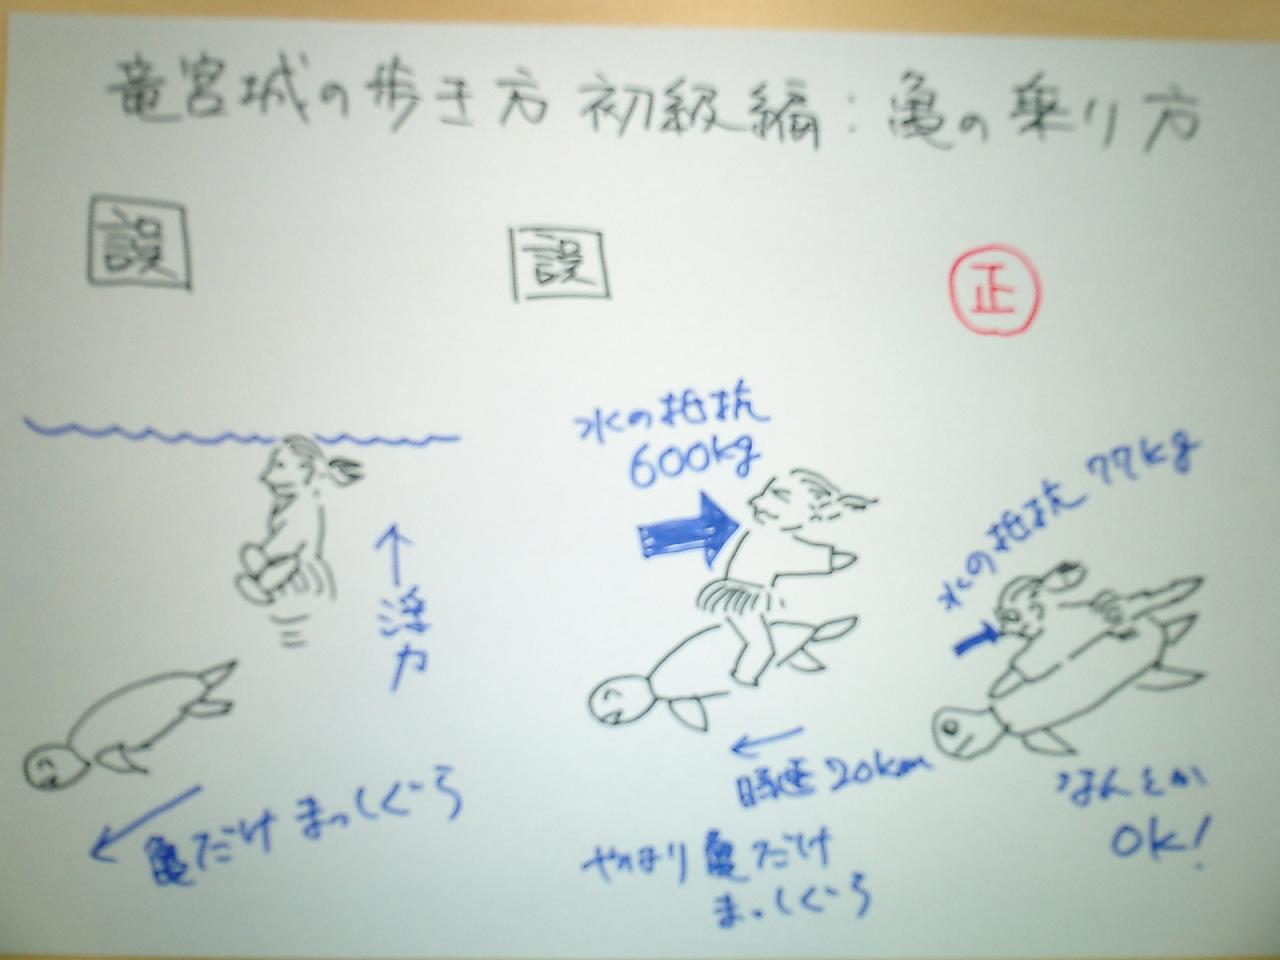 竜宮城の歩き方 初級編：亀の乗り方
誤
浮力
亀だけ まっしぐら
誤
水の抵抗
600kg
時速 20km
やはり 亀だけ
まっしぐら
正
水の抵抗 77kg
なんとか
OK!